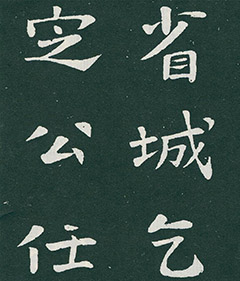 省城乞
定公任